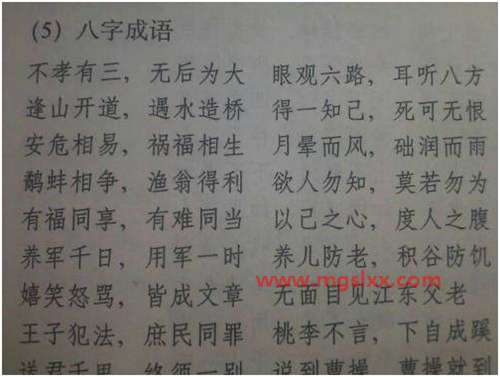 (5) 八字成语
不孝有三，无后为大 眼观六路，耳听八方
逢山开道，遇水造桥 得一知己，死可无恨
安危相易，祸福相生 月晕而风，础润而雨
鹬蚌相争，渔翁得利 欲人勿知，莫若勿为
有福同享，有难同当 以己之心，度人之腹
养军千日，用军一时 养儿防老，积谷防饥
www.mgslxx.com
嬉笑怒骂，皆成文章 无面目见江东父老
王子犯法，庶民同罪 桃李不言，下自成蹊
送君千里，终须一别 说到曹操，曹操就到